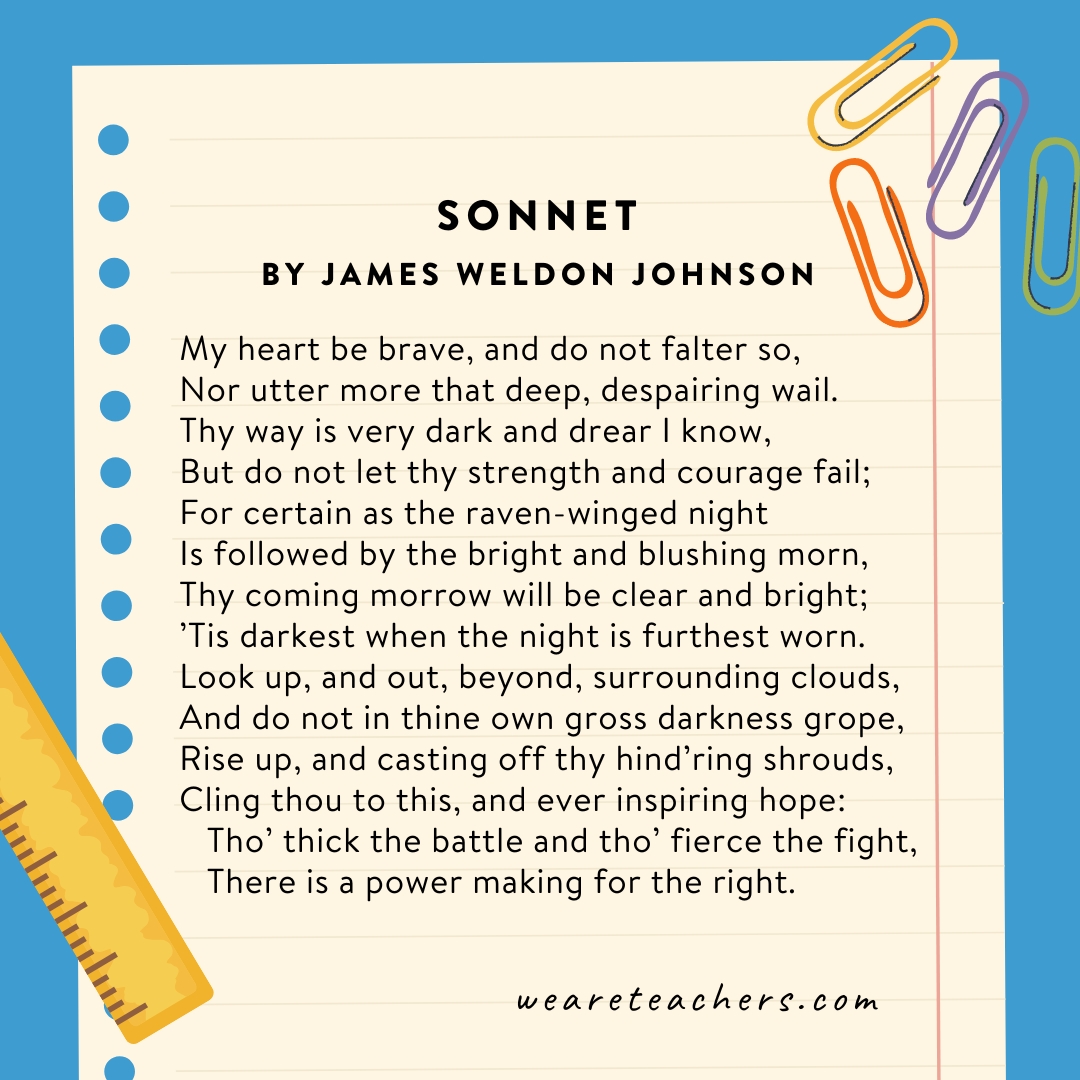 SONNET
BY JAMES WELDON JOHNSON
My heart be brave, and do not falter so,
Nor utter more that deep, despairing wail.
Thy way is very dark and drear I know,
But do not let thy strength and courage fail;
For certain as the raven-winged night
Is followed by the bright and blushing morn,
Thy coming morrow will be clear and bright;
’Tis darkest when the night is furthest worn.
Look up, and out, beyond, surrounding clouds,
And do not in thine own gross darkness grope,
Rise up, and casting off thy hind’ring shrouds,
Cling thou to this, and ever inspiring hope:
Tho’ thick the battle and tho’ fierce the fight,
There is a power making for the right.
weareteachers.com